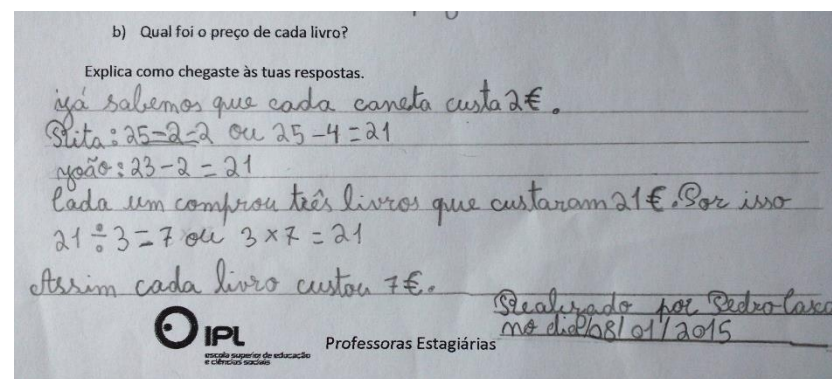 b) Qual foi o preço de cada livro?
Explica como chegaste às tuas respostas.
já sabemos que cada caneta custa 2€.
Rita: 25-2-2 ou 25-4=21
joão: 23-2=21
Cada um comprou três livros que custaram 21€. Por isso
21÷3=7 ou 3×7=21
Assim cada livro custou 7€.
Realizado por Pedro
no dia 08/01/2015
IPL
escola superior de educação
e ciências sociais
Professoras Estagiárias